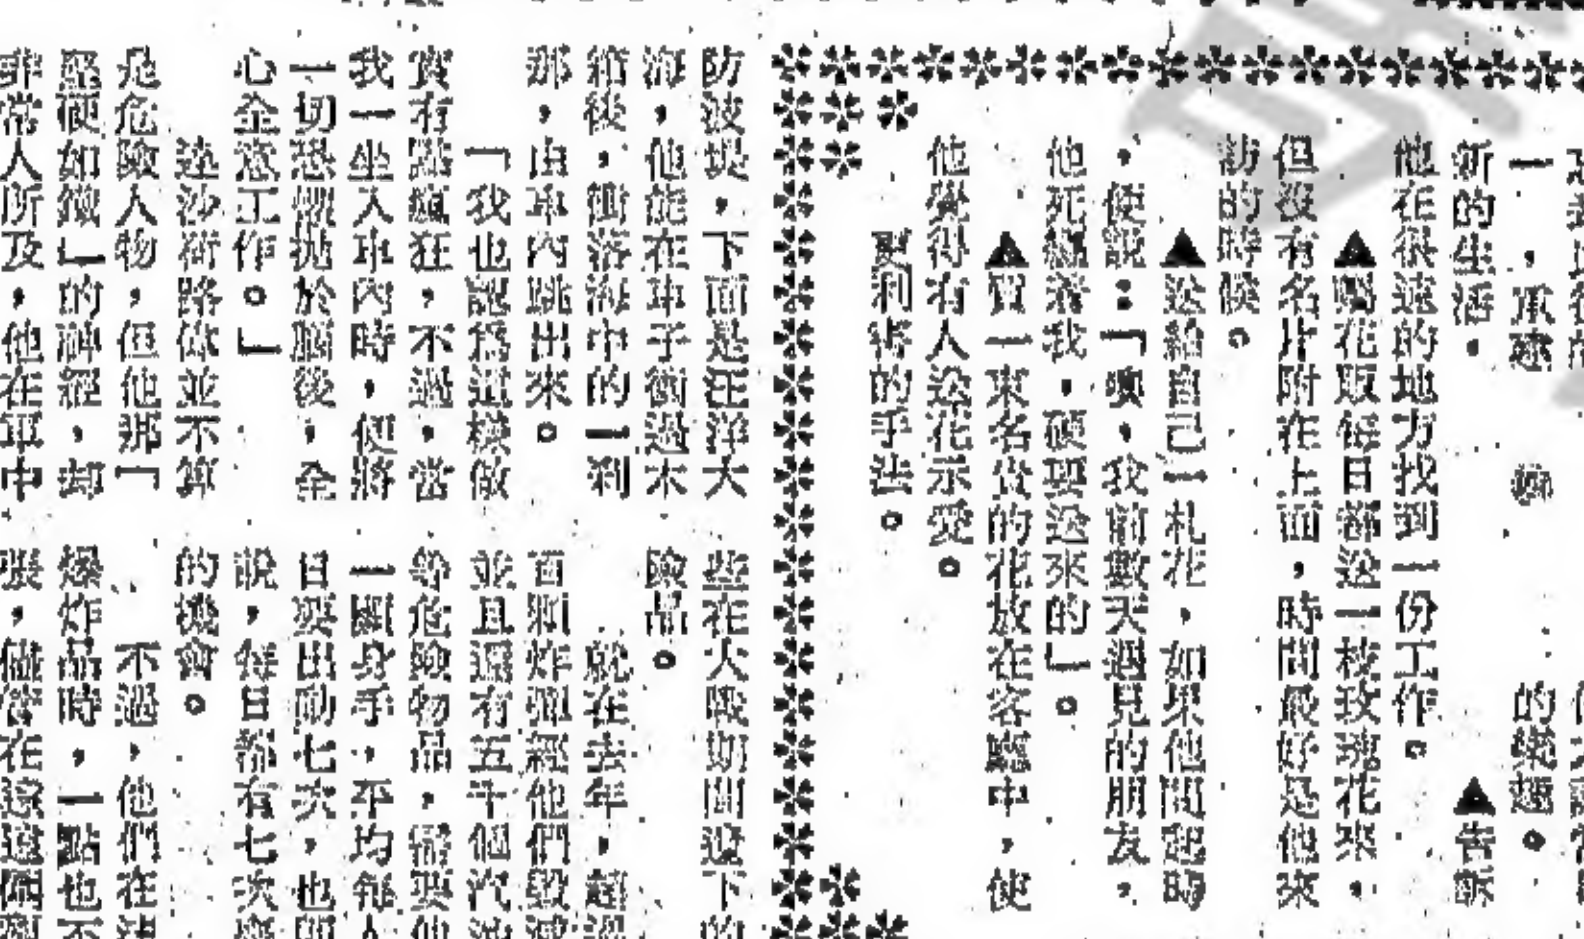 新的生活。
▲告訴
他在很遠的地方找到一份工作。
▲囑花販每日都送一枝玫瑰花來,
但沒有名片附在上面,時間最好是他來
訪的時候。
▲送給自己一札花,如果他問起時
,便說:「噢,我前數天遇見的朋友,
他死纏着我,硬要送來的」。
▲買一束名貴的花放在客廳中,使
他覺得有人送花示愛。
更利害的手法。
防波堤,下面是汪洋大
海,他能在車子衝過木
箱後,衝落海中的一刹
那,由車內跳出來。
「我也認爲這樣做
實有點瘋狂,不過,當
我一坐入車內時,便將
一切恐懼拋於腦後,全
心全意工作。」
達沙菥路依並不算
是危險人物,但他那「
堅硬如鐵」的神經,却
非常人所及,他在軍中
些在大戰期間遺下的
險品。
就在去年,超過
百顆炸彈經他們毀滅
並且還有五千個汽油
等危險物品,需要他
一顯身手,平均每人
日要出動七次,也即
說,每日都有七次喪
的機會。
不過,他們在
爆炸品時,一點也不
張,儘管在